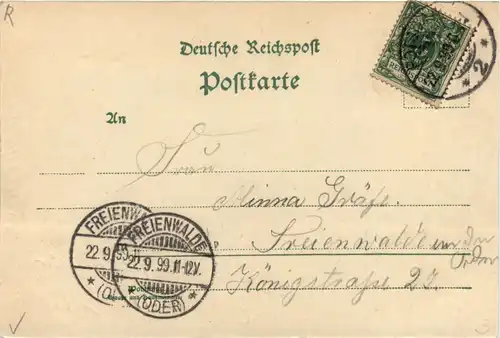 R
Deutsche Reichspost
Postkarte
22.9.99
* 2 *
An
Frau
Minna Gräfe
Freienwalde an der
Oder
Königstraße 23.
FREIENWALDE
22.9.99
FREIENWALDE
22.9.99.11-12V.
* (ODER) *